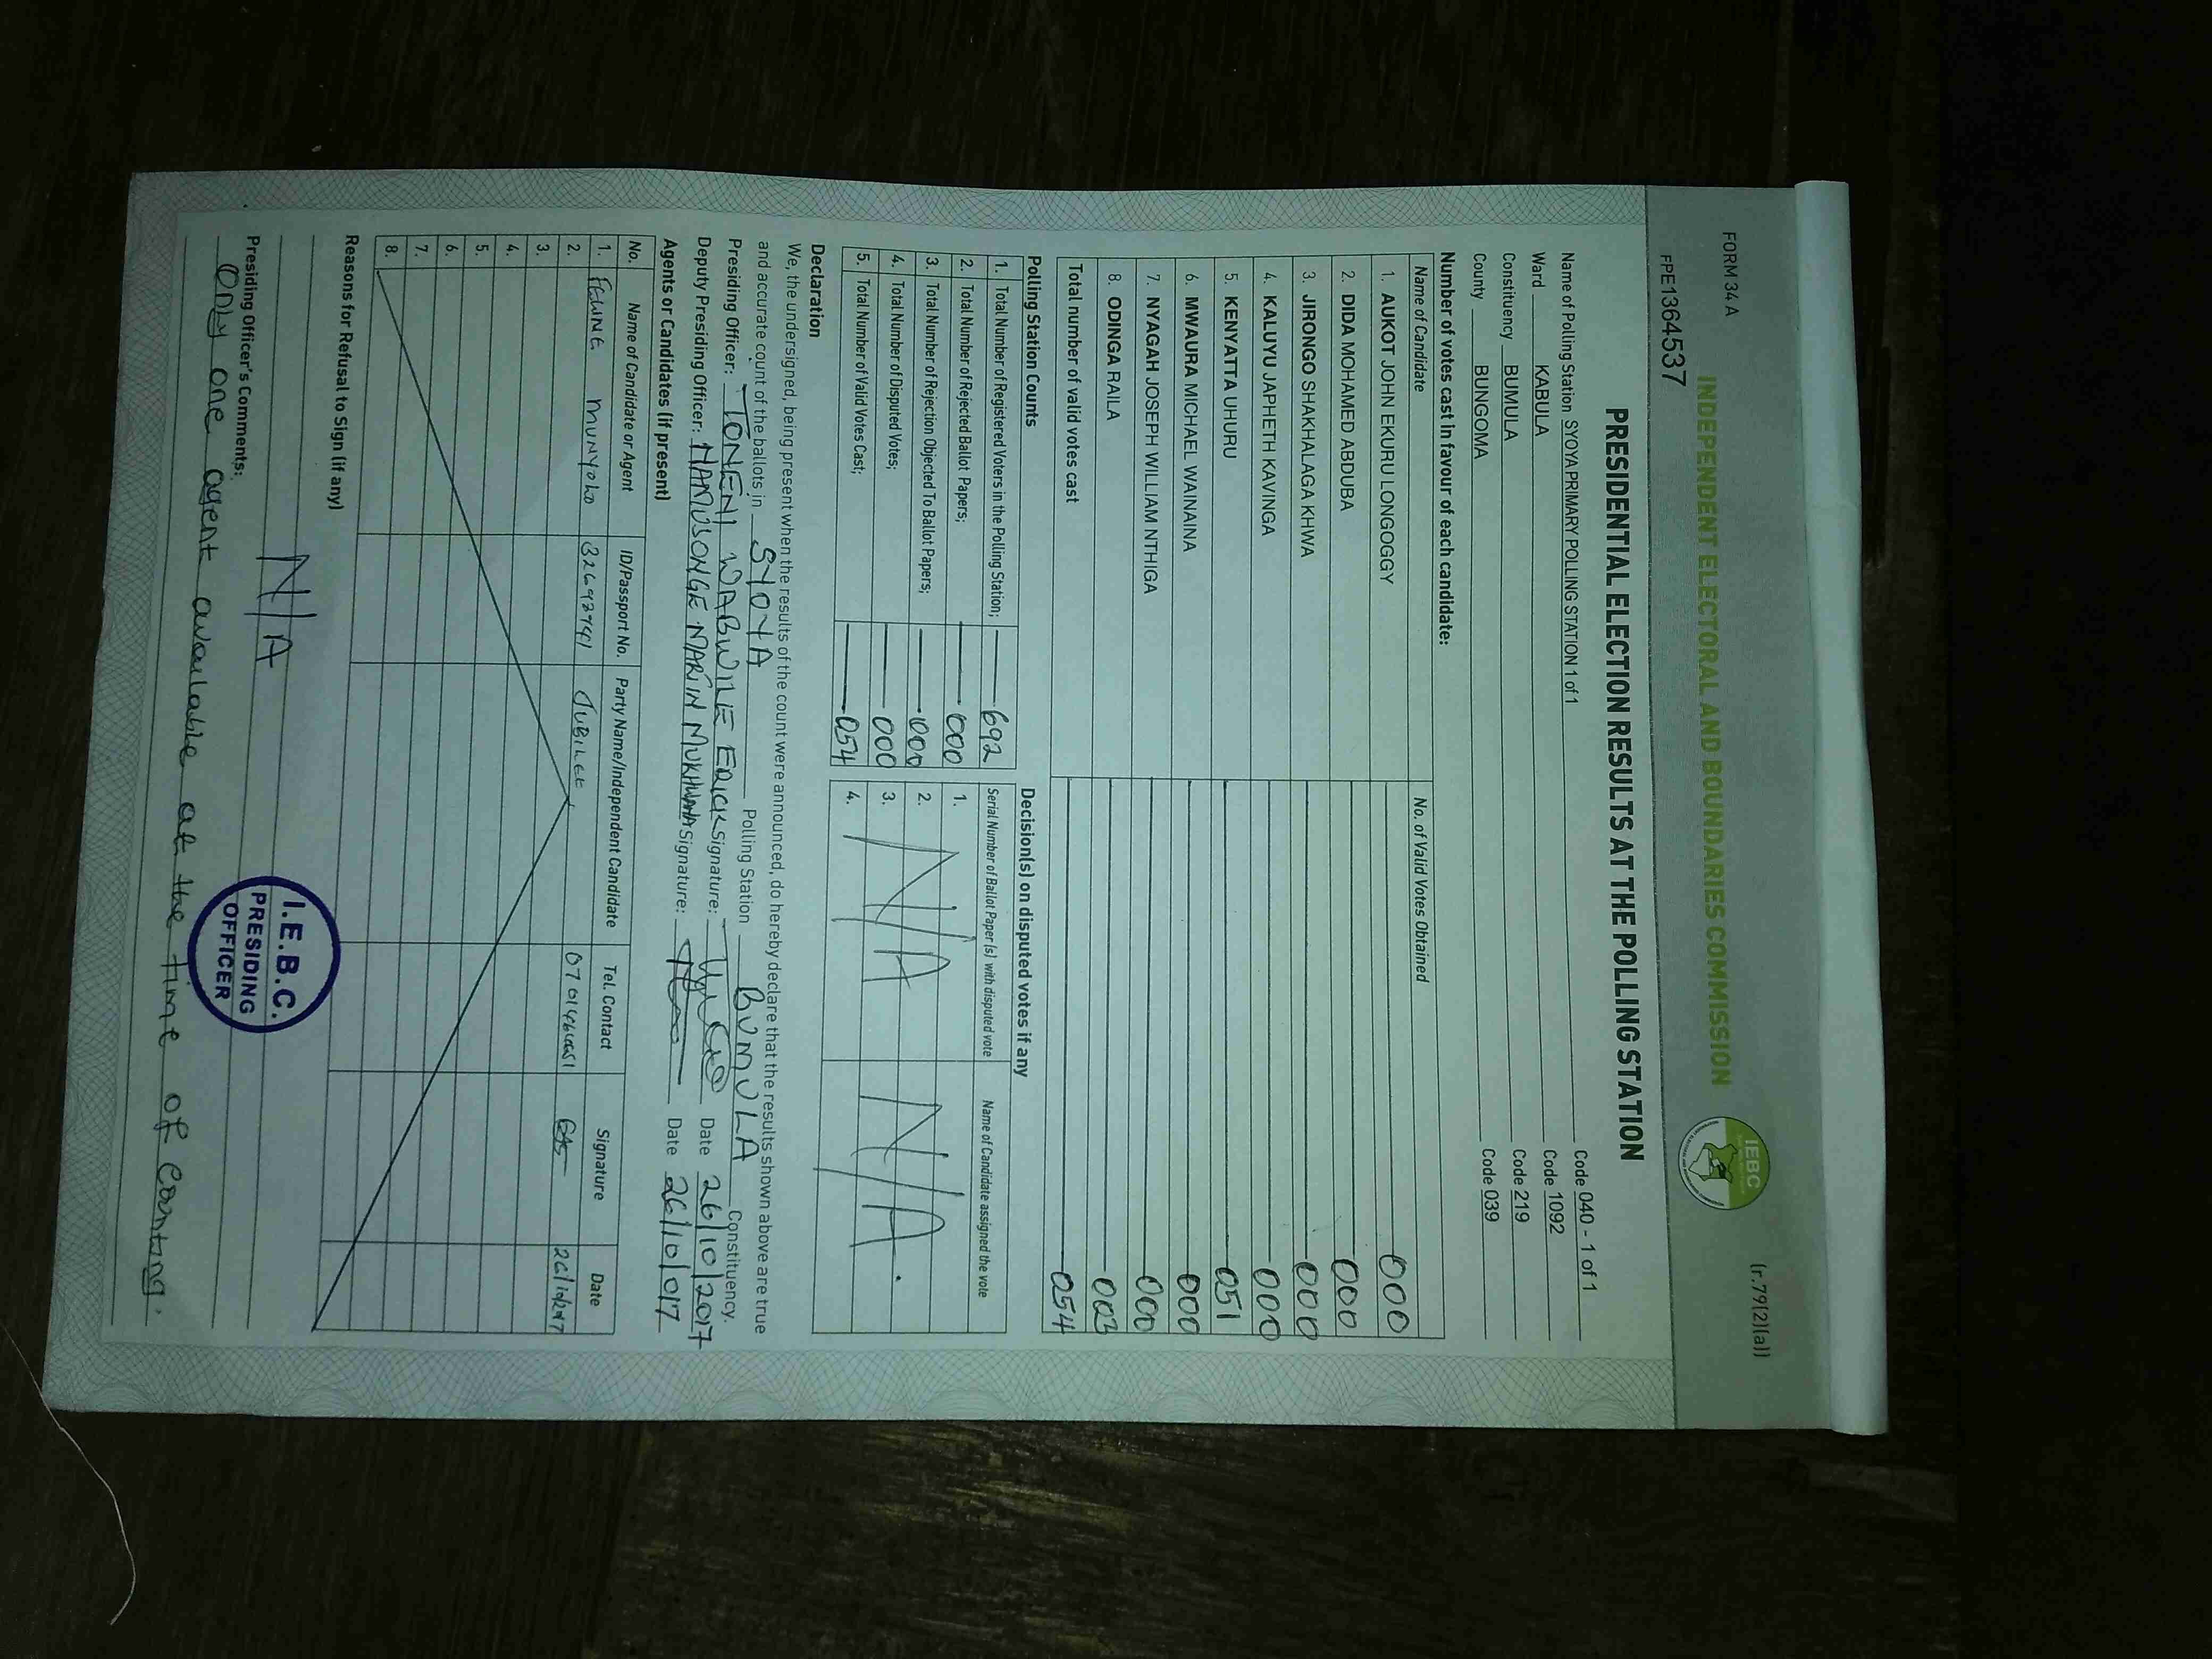 FORM 34 A
(r.79(2)(a))
INDEPENDENT ELECTORAL AND BOUNDARIES COMMISSION
IEBC
FPE1364537
PRESIDENTIAL ELECTION RESULTS AT THE POLLING STATION
Name of Polling Station SYOYA PRIMARY POLLING STATION 1 of 1 Code 040 - 1 of 1
Ward KABULA Code 1092
Constituency BUMULA Code 219
County BUNGOMA Code 039
Number of votes cast in favour of each candidate:
Name of Candidate No. of Valid Votes Obtained
1. AUKOT JOHN EKURU LONGOGGY 000
2. DIDA MOHAMED ABDUBA 000
3. JIRONGO SHAKHALAGA KHWA 000
4. KALUYU JAPHETH KAVINGA 000
5. KENYATTA UHURU 051
6. MWAURA MICHAEL WAINAINA 000
7. NYAGAH JOSEPH WILLIAM NTHIGA 000
8. ODINGA RAILA 003
Total number of valid votes cast 054
Polling Station Counts
1. Total Number of Registered Voters in the Polling Station; 692
2. Total Number of Rejected Ballot Papers; 000
3. Total Number of Rejection Objected To Ballot Papers; 000
4. Total Number of Disputed Votes; 000
5. Total Number of Valid Votes Cast; 054
Decision(s) on disputed votes if any
Serial Number of Ballot Paper (s) with disputed vote Name of Candidate assigned the vote
1.
2.
3.
4.
N/A N/A.
Declaration
We, the undersigned, being present when the results of the count were announced, do hereby declare that the results shown above are true
and accurate count of the ballots in SYOYA Polling Station BUMULA Constituency.
Presiding Officer: WABWILE ERICK Signature: Date 26/10/2017
Deputy Presiding Officer: Signature: Date 26/10/017
Agents or Candidates (if present)
No. Name of Candidate or Agent ID/Passport No. Party Name/Independent Candidate Tel. Contact Signature Date
1. MUNYOKO JUBILEE
2.
3.
4.
5.
6.
7.
8.
Reasons for Refusal to Sign (if any)
N/A
Presiding Officer's Comments:
Only one agent available at the time of Counting.
I.E.B.C.
PRESIDING
OFFICER